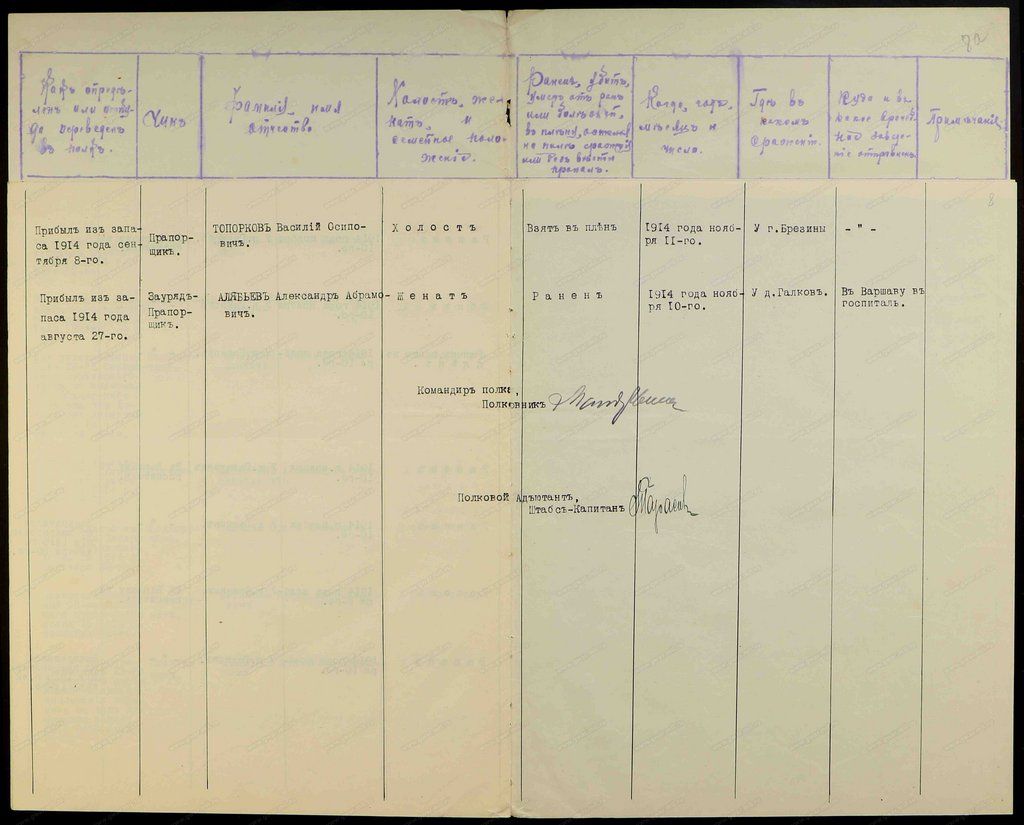 72
Какъ опредѣ-
ленъ или отку-
да переведенъ
въ полкъ.
Чинъ
Фамилія, имя
отчество
Холостъ, же-
натъ, и
семейное поло-
женіе.
Раненъ, убитъ,
умеръ отъ ранъ
или болѣзней,
въ плѣну, остался
на полѣ сраженія
или безъ вѣсти
пропалъ.
Когда, годъ,
мѣсяцъ и
число.
Гдѣ въ
какомъ
сраженіи.
Куда и въ
какое врачеб-
ное заведе-
ніе отправленъ.
Примѣчаніе.
8
Прибылъ изъ запа-
са 1914 года сен-
тября 8-го.
Прапор-
щикъ.
ТОПОРКОВЪ Василій Осипо-
вичъ.
Холостъ
Взятъ въ плѣнъ
1914 года нояб-
ря 11-го.
У г.Брезины
- " -
Прибылъ изъ за-
паса 1914 года
августа 27-го.
Заурядъ-
Прапор-
щикъ.
АЛЯБЬЕВЪ Александръ Абрамо-
вичъ.
Женатъ
Раненъ
1914 года нояб-
ря 10-го.
У д.Галковъ.
Въ Варшаву въ
госпиталь.
Командиръ полка,
Полковникъ
Полковой Адъютантъ,
Штабсъ-Капитанъ